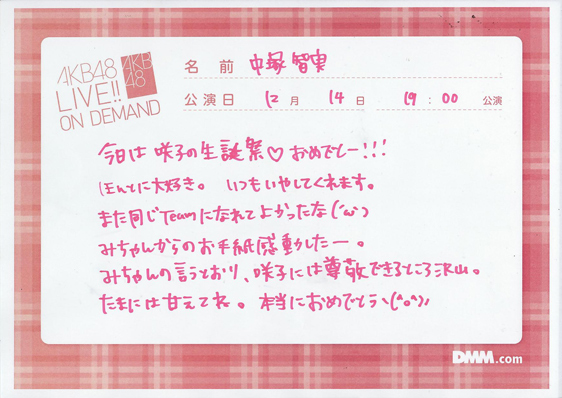 AKB48
LIVE!!
ON DEMAND
AKB
48
名 前 中塚 智実
公演日 12月 14日 19:00 公演
今日は 咲子の生誕祭♡おめでとー!!!
ほんとに大好き。 いつもいやしてくれます。
また同じTeamになれてよかったな(´ω`)
みちゃんからのお手紙感動したー。
みちゃんの言うとおり、咲子には尊敬できるところ沢山。
たまには甘えてね。 本当におめでとう＼(^o^)/
DMM.com